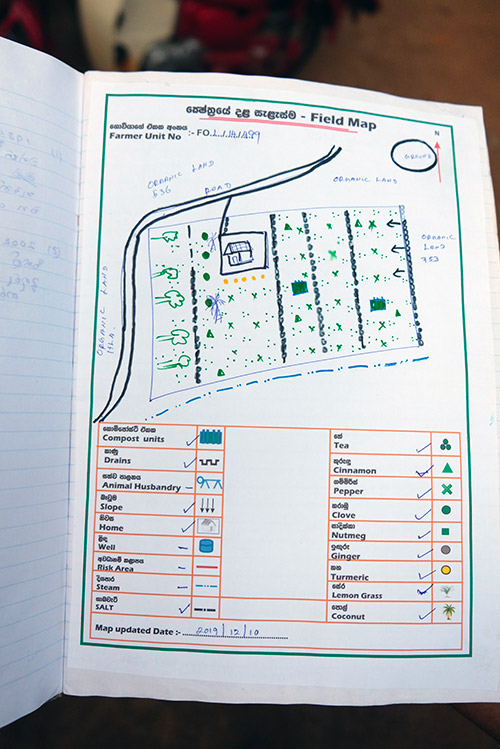 ක්ෂේත්‍රයේ දළ සැලැස්ම - Field Map
ගොවියාගේ ඒකක අංකය
Farmer Unit No :- FO.
N
GROUND
ORGANIC LAND
536
ROAD
ORGANIC LAND
ORGANIC
LAND
753
ORGANIC LAND
කොම්පෝස්ට් ඒකක
Compost units
කාණු
Drains
සත්ව පාලනය
Animal Husbandry
බෑවුම
Slope
නිවස
Home
ළිඳ
Well
අවධානම් කලාපය
Risk Area
දියපාර
Steam
SALT
තේ
Tea
කුරුඳු
Cinnamon
ගම්මිරිස්
Pepper
කරාබු
Clove
සාදික්කා
Nutmeg
ඉඟුරු
Ginger
කහ
Turmeric
සේර
Lemon Grass
පොල්
Coconut
Map updated Date :- 2019/12/10